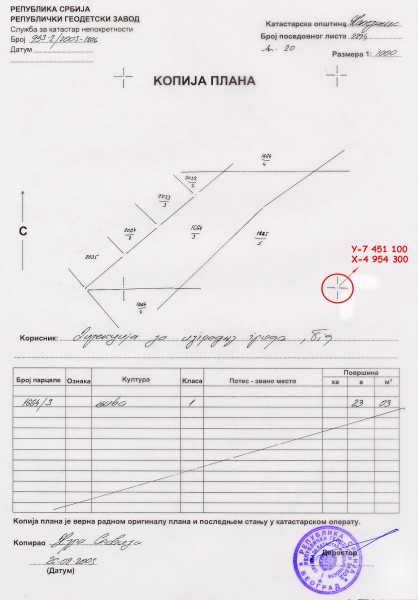 РЕПУБЛИКА СРБИЈА
РЕПУБЛИЧКИ ГЕОДЕТСКИ ЗАВОД
Служба за катастар непокретности
Број 953-2/2003-1606
Датум
Катастарска општина
Број поседовног листа 2094
20
Размера 1: 1000
КОПИЈА ПЛАНА
С
У-7 451 100
Х-4 954 300
1664/3
2035
Корисник: Дирекција за изградњу града, Бгд
Број парцеле Ознака Култура Класа Потес - звано место Површина
ха а м²
1664/3 њива 1 23 03
Копија плана је верна радном оригиналу плана и последњем стању у катастарском операту.
Копирао
Директор
26.08.2003
(Датум)
РЕПУБЛИКА СРБИЈА
БЕОГРАД